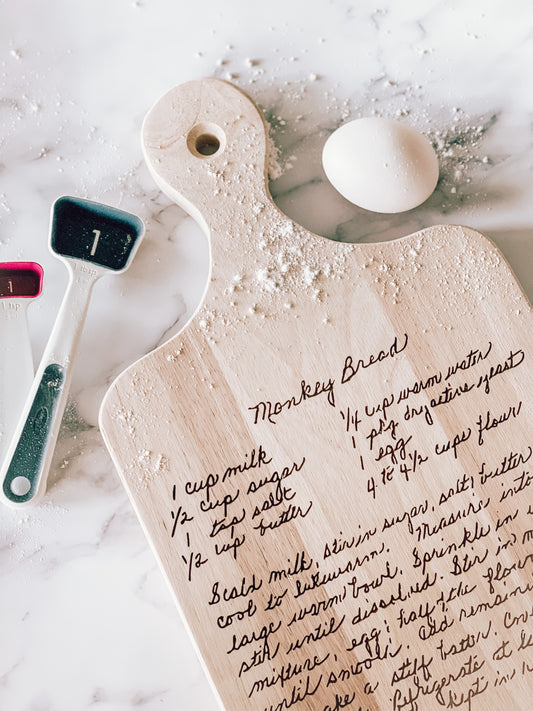 1
1 tbsp
1
1 tsp
Monkey Bread
1 cup milk
1/2 cup sugar
1 tsp salt
1/2 cup butter
1/4 cup warm water
1 pkg dry active yeast
1 egg
4 to 4 1/2 cups flour
Scald milk, stir in sugar, salt, butter
cool to lukewarm. Measure into
large warm bowl. Sprinkle in
stir until dissolved. Stir in
mixture, egg, half the flour
until smooth. Add remaining
a stiff batter.
Refrigerate at
kept in